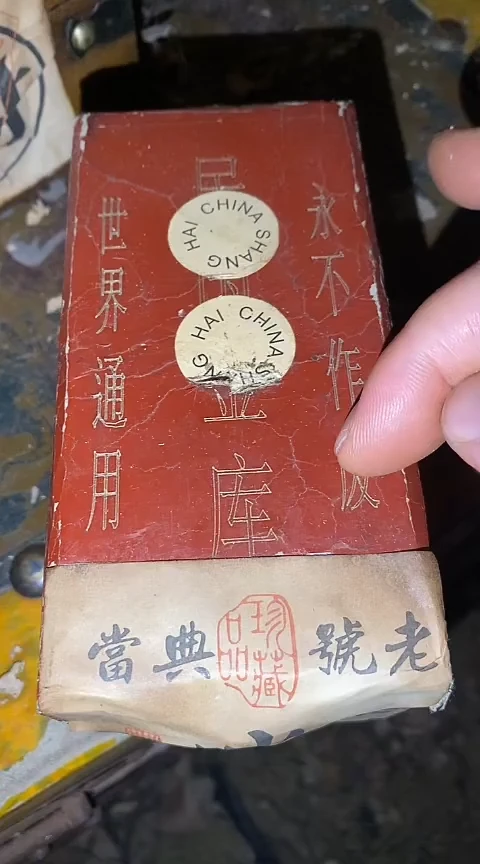 永不作
库
世界通用
CHINA SHANG HAI
HAI CHINA
老號典當
珍藏
品